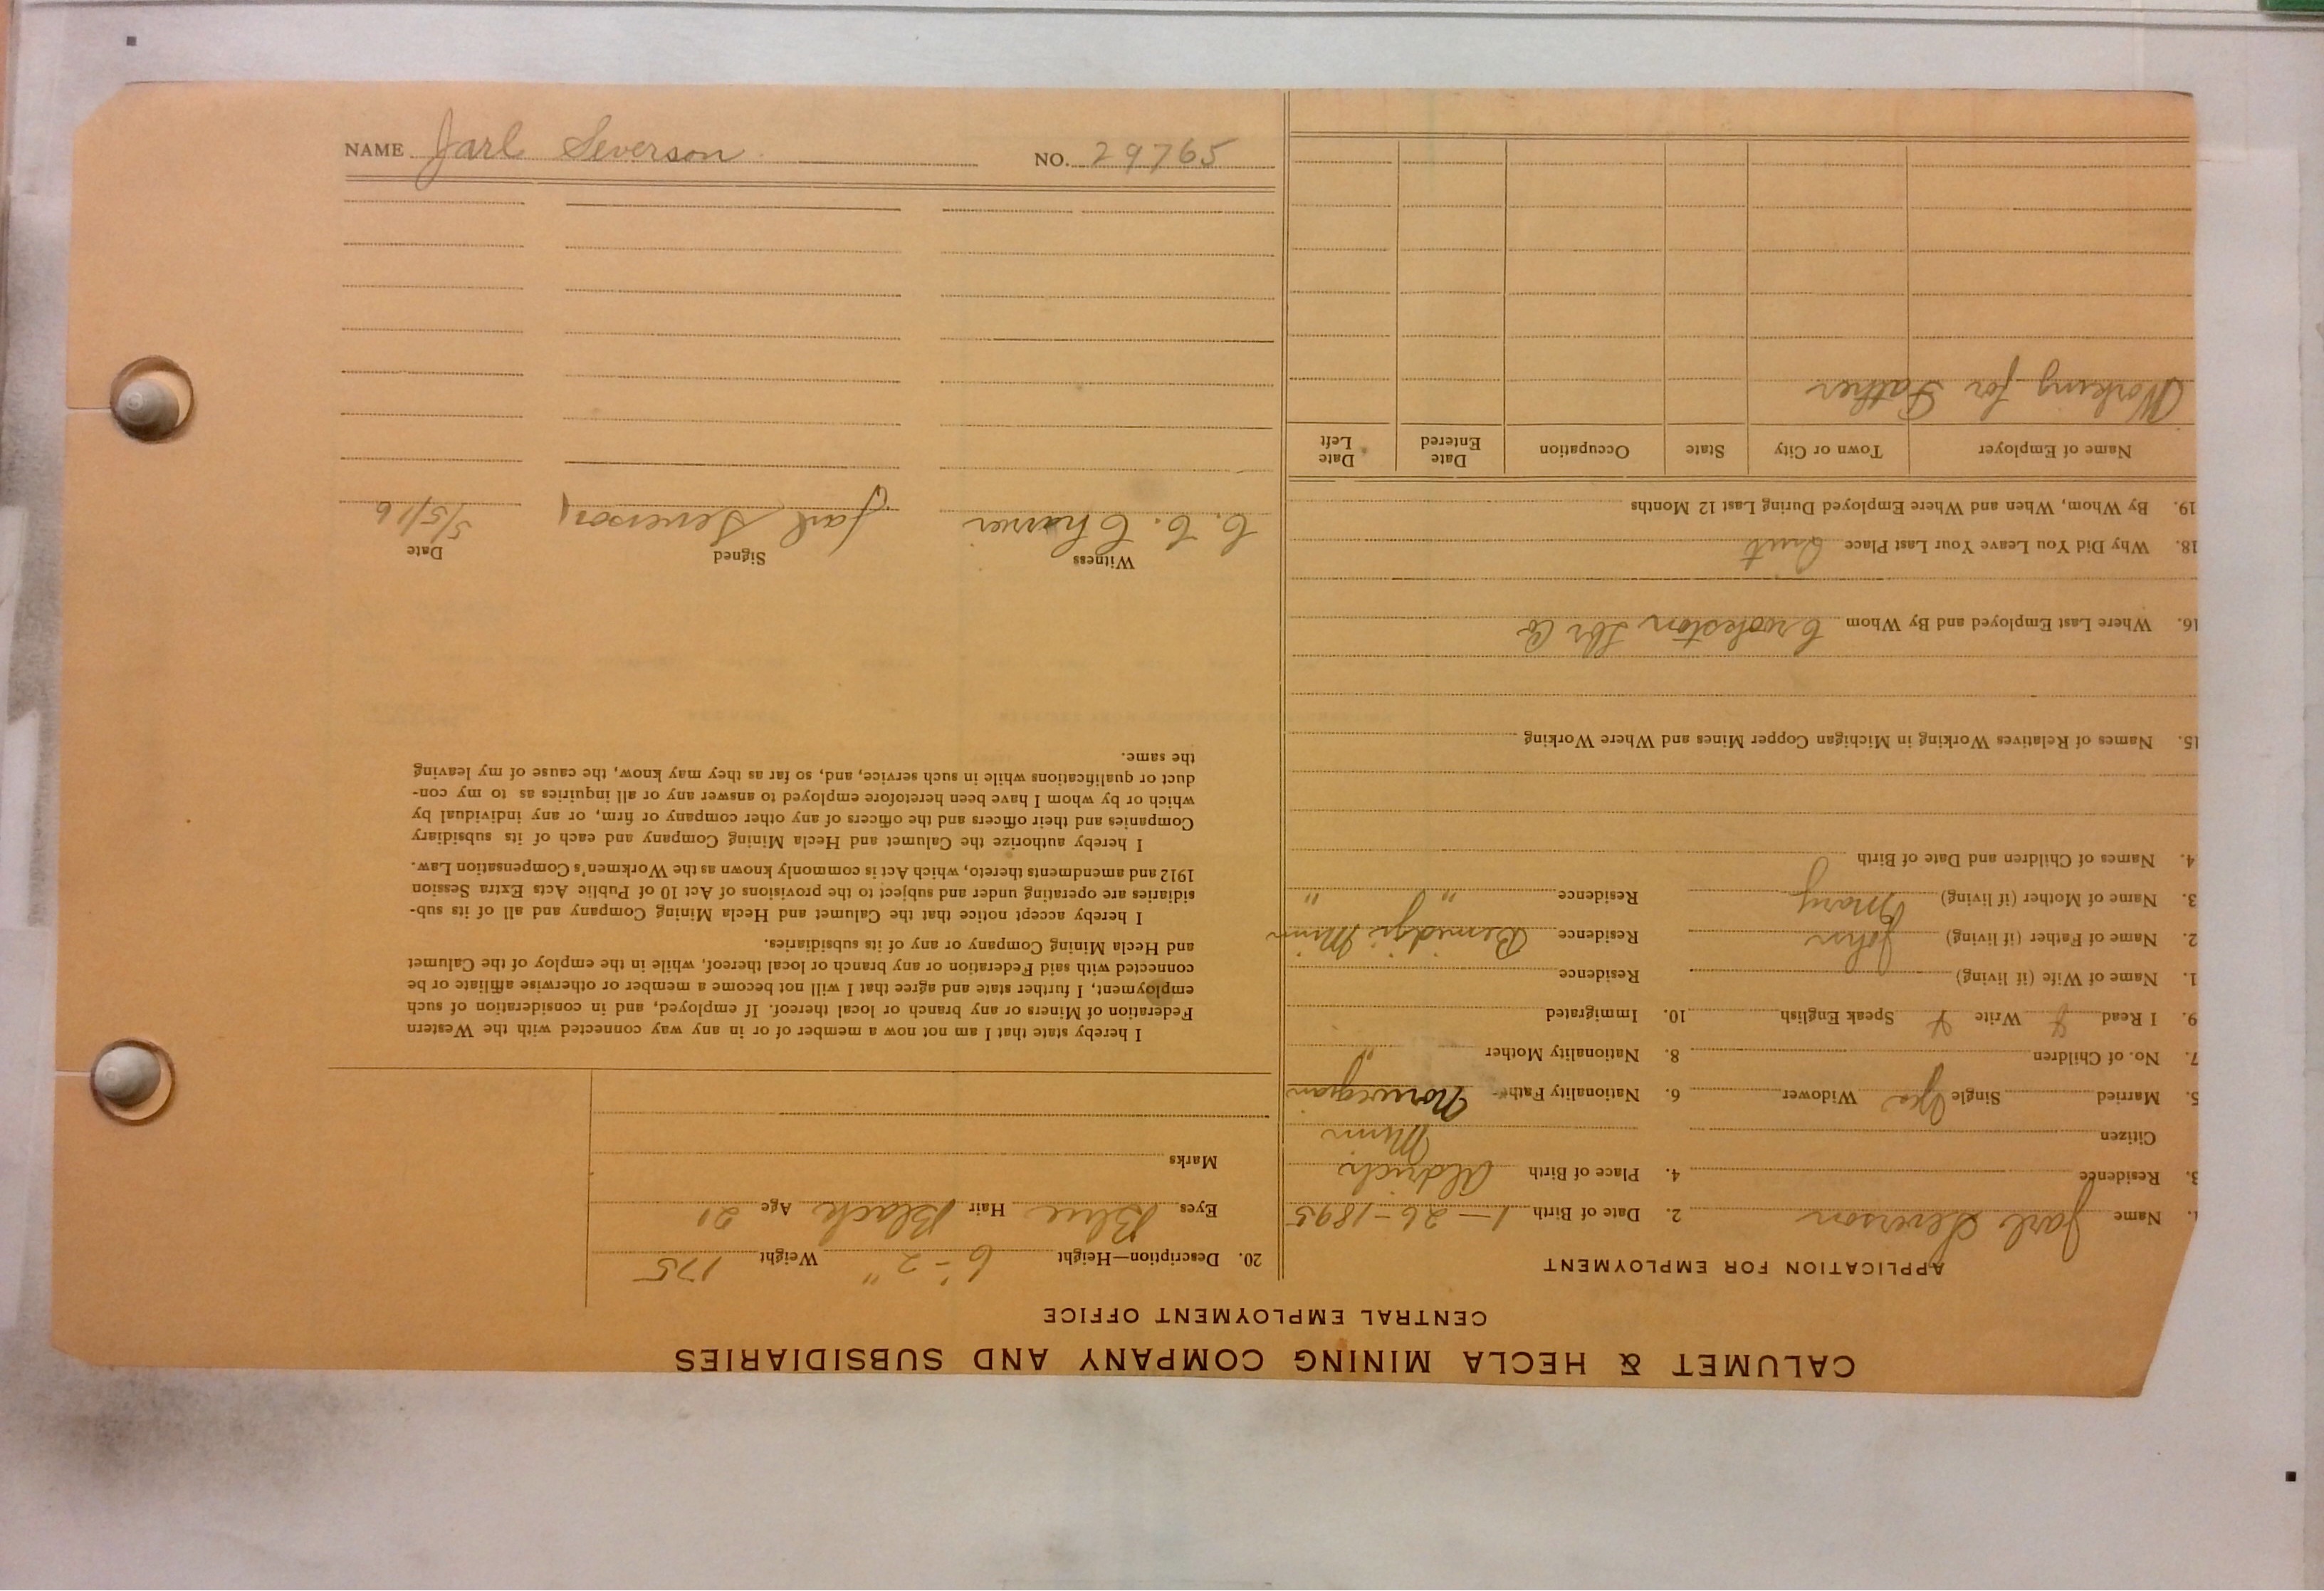 NAME Jarl Severson NO. 29765
CALUMET & HECLA MINING COMPANY AND SUBSIDIARIES
CENTRAL EMPLOYMENT OFFICE
APPLICATION FOR EMPLOYMENT
1. Name Jarl Severson 2. Date of Birth 1-26-1895
3. Residence 4. Place of Birth Aldrich
Citizen Minn
5. Married Single Yes Widower 6. Nationality Father Norwegian
7. No. of Children 8. Nationality Mother "
9. I Read Y Write Y Speak English 10. Immigrated
1. Name of Wife (if living) Residence
2. Name of Father (if living) John Residence Bemidji Minn
3. Name of Mother (if living) Mary Residence " "
4. Names of Children and Date of Birth
15. Names of Relatives Working in Michigan Copper Mines and Where Working
16. Where Last Employed and By Whom Crookston Lbr Co
18. Why Did You Leave Your Last Place Quit
19. By Whom, When and Where Employed During Last 12 Months
Name of Employer Town or City State Occupation Date Entered Date Left
Working for Father
20. Description—Height 6-2" Weight 175
Eyes Blue Hair Black Age 21
Marks
I hereby state that I am not now a member of or in any way connected with the Western
Federation of Miners or any branch or local thereof. If employed, and in consideration of such
employment, I further state and agree that I will not become a member or otherwise affiliate or be
connected with said Federation or any branch or local thereof, while in the employ of the Calumet
and Hecla Mining Company or any of its subsidiaries.
I hereby accept notice that the Calumet and Hecla Mining Company and all of its sub-
sidiaries are operating under and subject to the provisions of Act 10 of Public Acts Extra Session
1912 and amendments thereto, which Act is commonly known as the Workmen's Compensation Law.
I hereby authorize the Calumet and Hecla Mining Company and each of its subsidiary
Companies and their officers and the officers of any other company or firm, or any individual by
which or by whom I have been heretofore employed to answer any or all inquiries as to my con-
duct or qualifications while in such service, and, so far as they may know, the cause of my leaving
the same.
Witness Signed Date
C. C. Jarl Severson 5/5/16